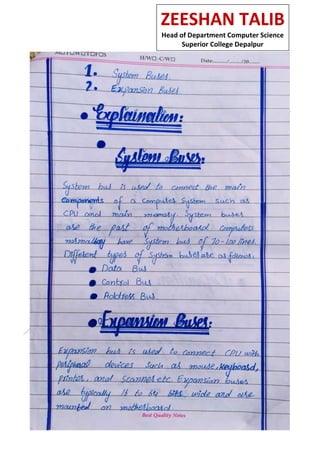 ZEESHAN TALIB
Head of Department Computer Science
Superior College Depalpur
H/W□-C/W□ Date:____/____/20____
1. System Buses.
2. Expansion Buses
• Explaination:
• System Buses:
System bus is used to connect the main
components of a computer system such as
CPU and main memory. System buses
are the part of motherboard computers
normally have system bus of 70-100 lines.
Different types of System buses are as follows:
• Data Bus
• Control Bus
• Address Bus.
• Expansion Buses:
Expansion bus is used to connect CPU with
peripheral devices such as mouse, keyboard,
printer, and scanner etc. Expansion buses
are typically 16 to 64 bits wide and are
mounted on motherboard
Best Quality Notes